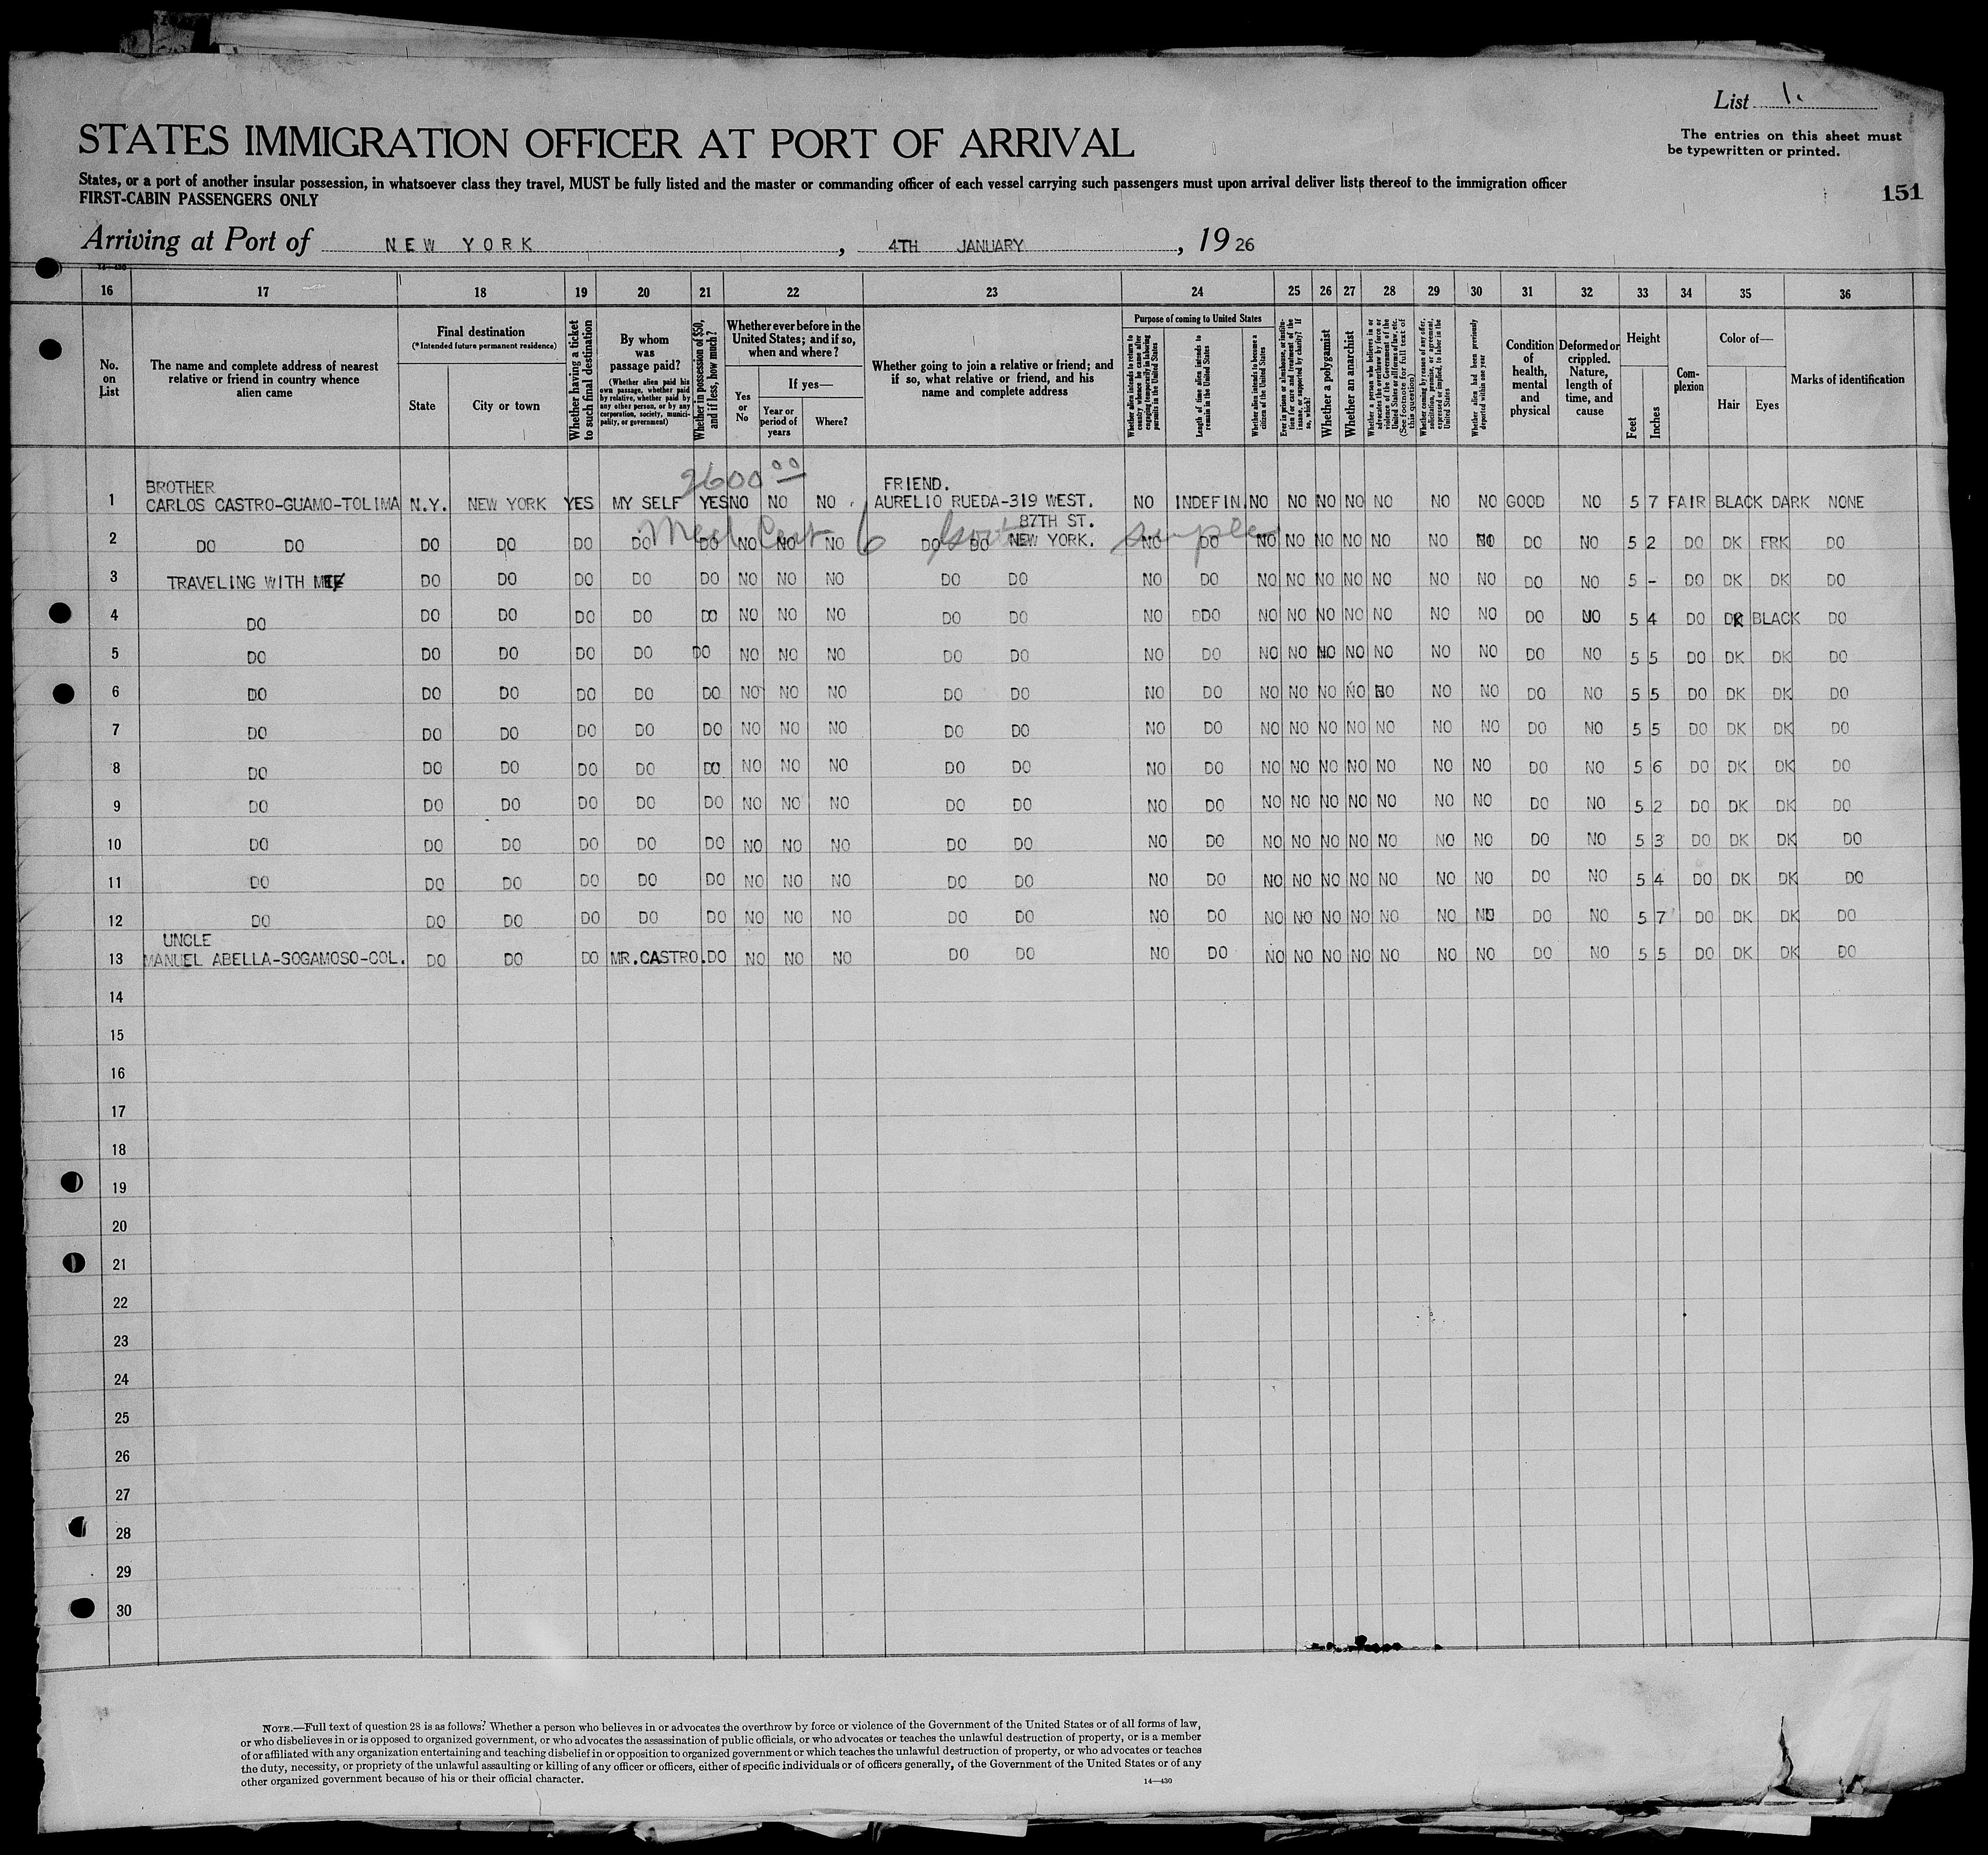 List 1.
STATES IMMIGRATION OFFICER AT PORT OF ARRIVAL
The entries on this sheet must
be typewritten or printed.
States, or a port of another insular possession, in whatsoever class they travel, MUST be fully listed and the master or commanding officer of each vessel carrying such passengers must upon arrival deliver lists thereof to the immigration officer
FIRST-CABIN PASSENGERS ONLY
151
Arriving at Port of NEW YORK, 4TH JANUARY, 19 26
14-430
16 17 18 19 20 21 22 23 24 25 26 27 28 29 30 31 32 33 34 35 36
No. on List
The name and complete address of nearest relative or friend in country whence alien came
Final destination
(*Intended future permanent residence)
State
City or town
Whether having a ticket to such final destination
By whom was passage paid?
(Whether alien paid his own passage, whether paid by relative, whether paid by any other person, or by any corporation, society, municipality, or government)
Whether in possession of $50, and if less, how much?
Whether ever before in the United States; and if so, when and where?
Yes or No
If yes—
Year or period of years
Where?
Whether going to join a relative or friend; and if so, what relative or friend, and his name and complete address
Purpose of coming to United States
Whether alien intends to return to country whence he came after engaging temporarily in laboring pursuits in the United States
Length of time alien intends to remain in the United States
Whether alien intends to become a citizen of the United States
Ever in prison or almshouse, or institution for care and treatment of the insane, or supported by charity? If so, which?
Whether a polygamist
Whether an anarchist
Whether a person who believes in or advocates the overthrow by force or violence of the Government of the United States or all forms of law, etc. (See footnote for full text of this question)
Whether coming by reason of any offer, solicitation, promise, or agreement, expressed or implied, to labor in the United States
Whether alien had been previously deported within one year
Condition of health, mental and physical
Deformed or crippled. Nature, length of time, and cause
Height
Feet
Inches
Complexion
Color of—
Hair
Eyes
Marks of identification
2600 00
BROTHER FRIEND.
1 CARLOS CASTRO-GUAMO-TOLIMA N.Y. NEW YORK YES MY SELF YES NO NO NO AURELIO RUEDA-319 WEST. NO INDEFIN. NO NO NO NO NO NO NO GOOD NO 5 7 FAIR BLACK DARK NONE
87TH ST.
Med Cert
2 DO DO DO DO DO DO DO NO NO NO DO DO NEW YORK. NO DO NO NO NO NO NO NO NO DO NO 5 2 DO DK FRK DO
3 TRAVELING WITH ME DO DO DO DO DO NO NO NO DO DO NO DO NO NO NO NO NO NO NO DO NO 5 - DO DK DK DO
4 DO DO DO DO DO DO NO NO NO DO DO NO DDO NO NO NO NO NO NO NO DO NO 5 4 DO DK BLACK DO
5 DO DO DO DO DO DO NO NO NO DO DO NO DO NO NO NO NO NO NO NO DO NO 5 5 DO DK DK DO
6 DO DO DO DO DO DO NO NO NO DO DO NO DO NO NO NO NO NO NO NO DO NO 5 5 DO DK DK DO
7 DO DO DO DO DO DO NO NO NO DO DO NO DO NO NO NO NO NO NO NO DO NO 5 5 DO DK DK DO
8 DO DO DO DO DO DO NO NO NO DO DO NO DO NO NO NO NO NO NO NO DO NO 5 6 DO DK DK DO
9 DO DO DO DO DO DO NO NO NO DO DO NO DO NO NO NO NO NO NO NO DO NO 5 2 DO DK DK DO
10 DO DO DO DO DO DO NO NO NO DO DO NO DO NO NO NO NO NO NO NO DO NO 5 3 DO DK DK DO
11 DO DO DO DO DO DO NO NO NO DO DO NO DO NO NO NO NO NO NO NO DO NO 5 4 DO DK DK DO
12 DO DO DO DO DO DO NO NO NO DO DO NO DO NO NO NO NO NO NO NO DO NO 5 7 DO DK DK DO
UNCLE
13 MANUEL ABELLA-SOGAMOSO-COL. DO DO DO MR.CASTRO. DO NO NO NO DO DO NO DO NO NO NO NO NO NO NO DO NO 5 5 DO DK DK DO
14
15
16
17
18
19
20
21
22
23
24
25
26
27
28
29
30
NOTE.—Full text of question 28 is as follows: Whether a person who believes in or advocates the overthrow by force or violence of the Government of the United States or of all forms of law,
or who disbelieves in or is opposed to organized government, or who advocates the assassination of public officials, or who advocates or teaches the unlawful destruction of property, or is a member
of or affiliated with any organization entertaining and teaching disbelief in or opposition to organized government or which teaches the unlawful destruction of property, or who advocates or teaches
the duty, necessity, or propriety of the unlawful assaulting or killing of any officer or officers, either of specific individuals or of officers generally, of the Government of the United States or of any
other organized government because of his or their official character.
14—430